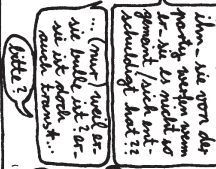 ihn- sie von der
party werfen wenn
er- sie es nicht so
gemeint /sich ent-
schuldigt hat ??
... (nur) weil er-
sie bulle ist? er-
sie ist doch
auch
bitte?